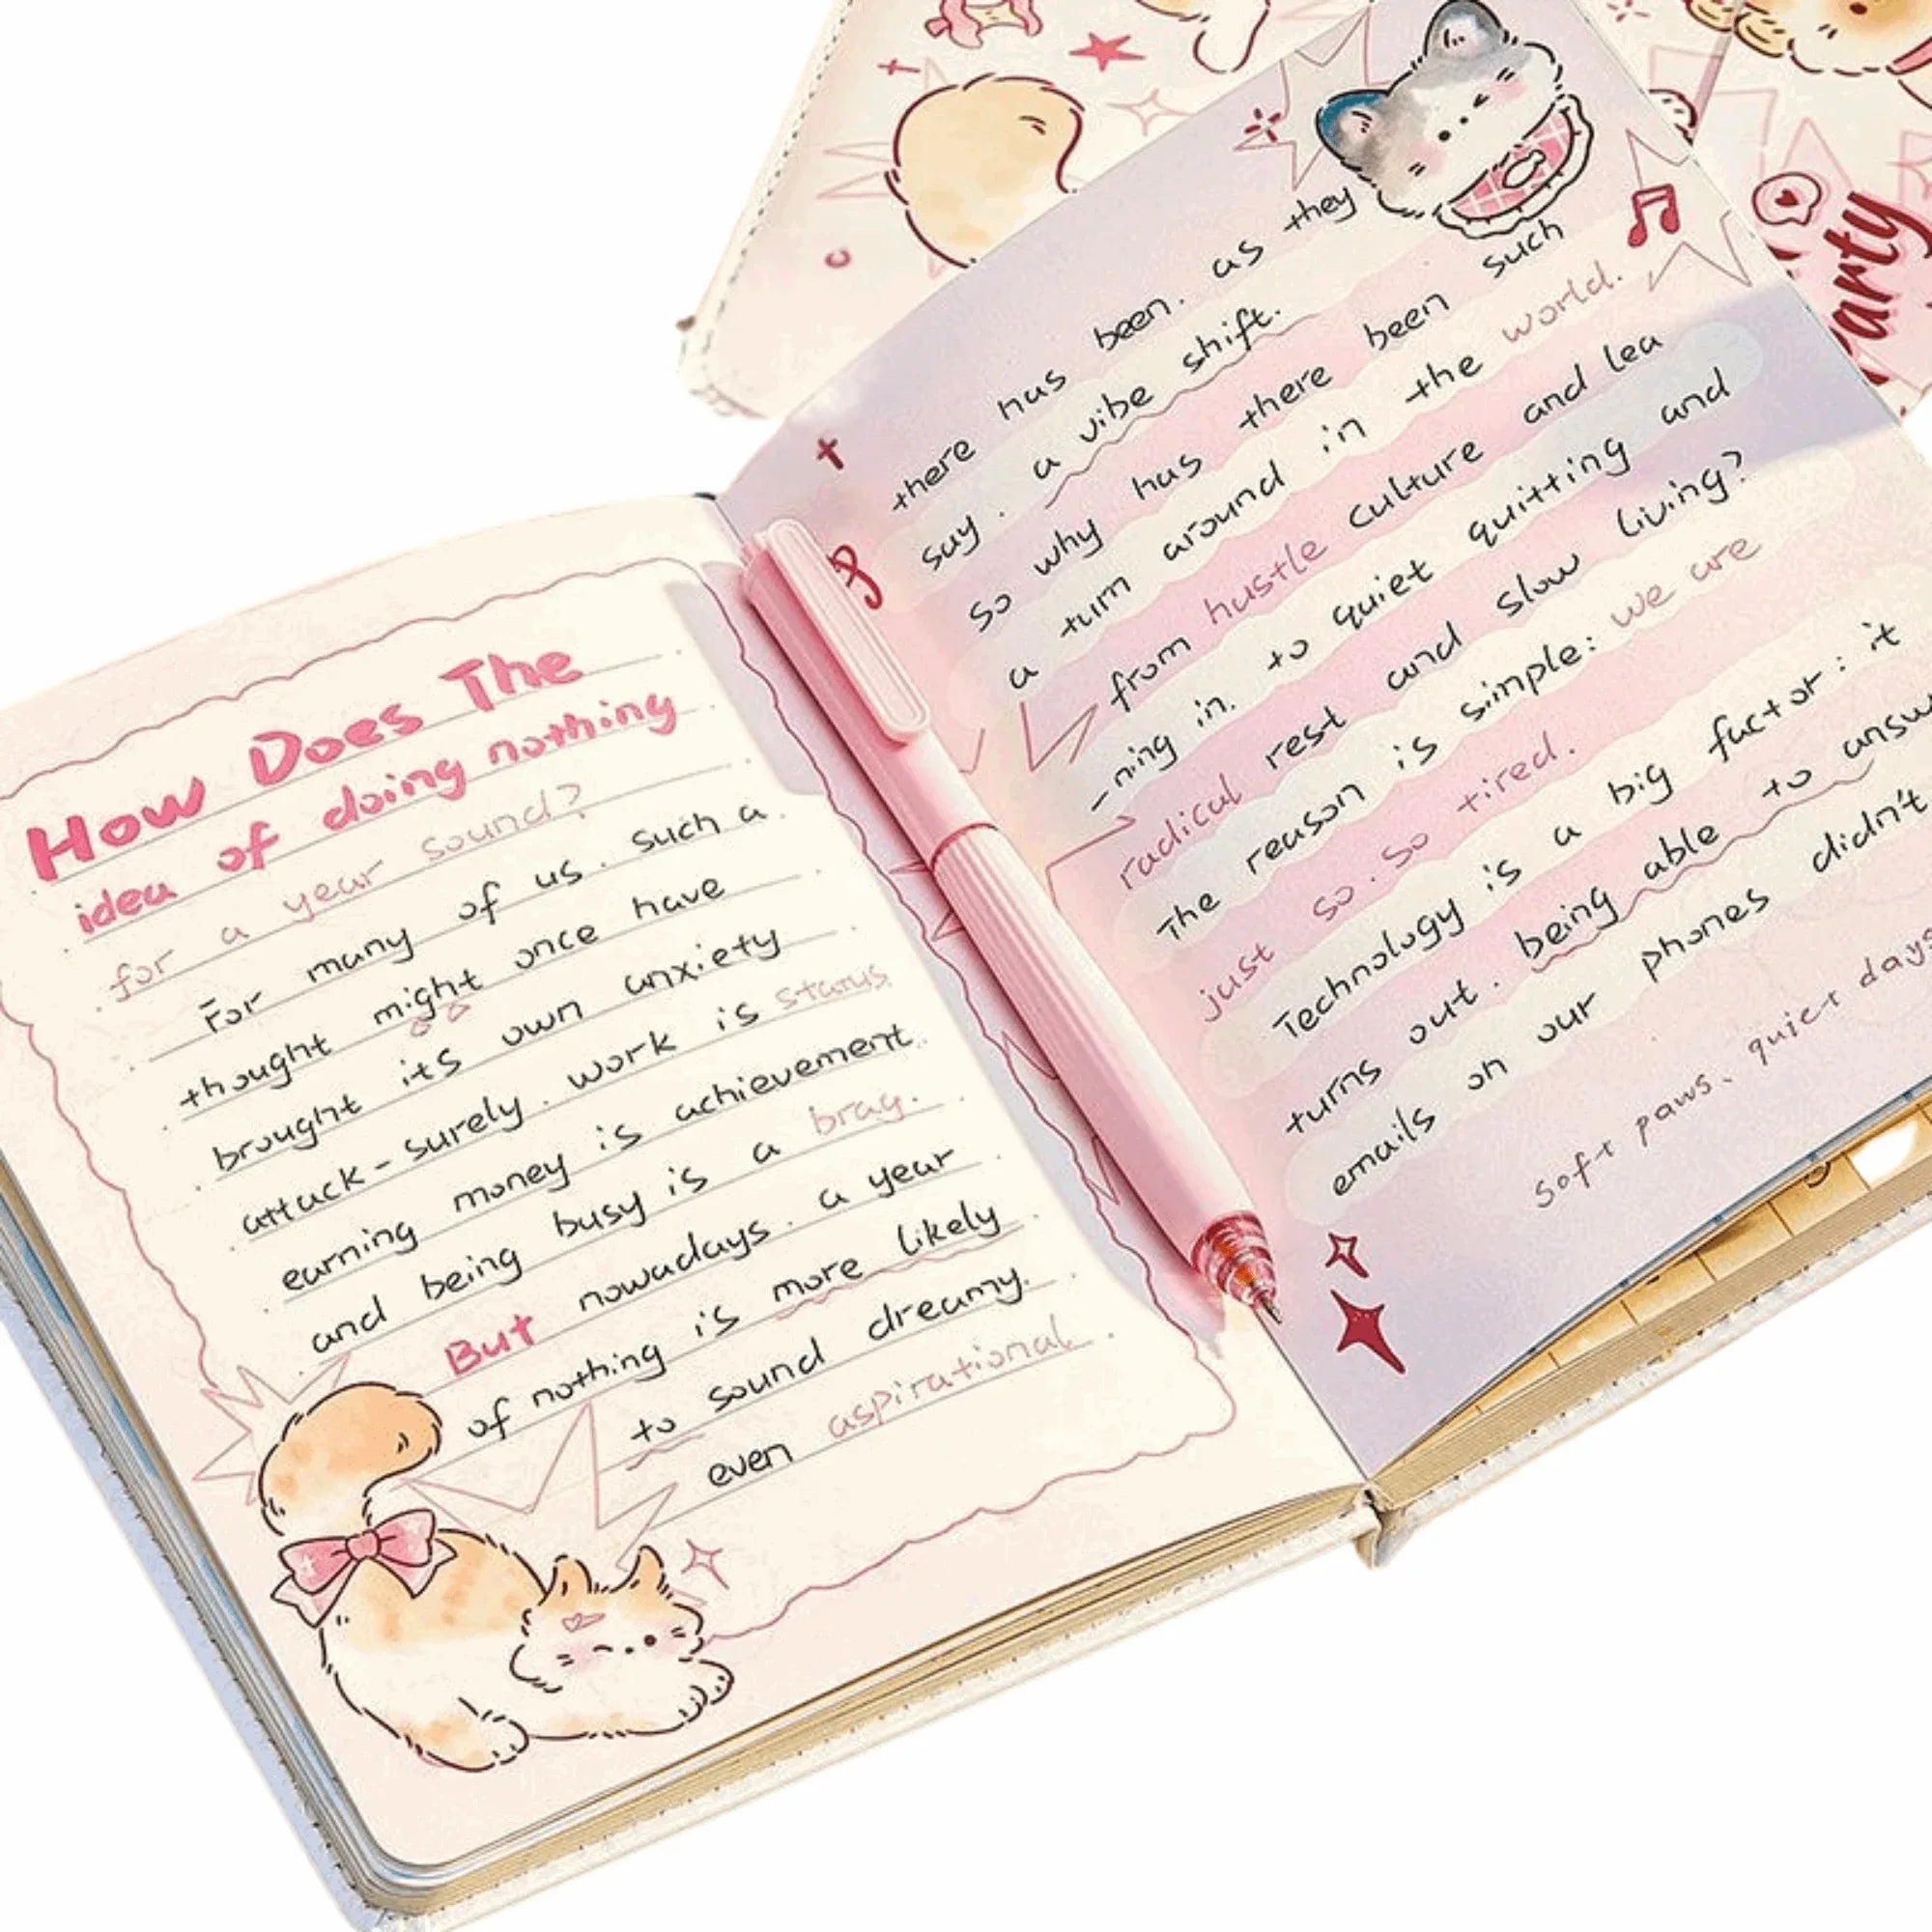 How Does The
idea of doing nothing
for a year sound?
For many of us. such a
thought might once have
brought its own anxiety
attack-surely. work is status
earning money is achievement.
and being busy is a brag.
But nowadays. a year
of nothing is more likely
to sound dreamy.
even aspirational
there has been. as they
say. a vibe shift.
so why has there been such
a turn around in the world.
from hustle culture and lea
-ning in. to quiet quitting and
radical rest and slow living?
The reason is simple: we are
just so. so tired.
Technology is a big factor: it
turns out. being able to answ
emails on our phones didn't
soft paws、quiet days
arty